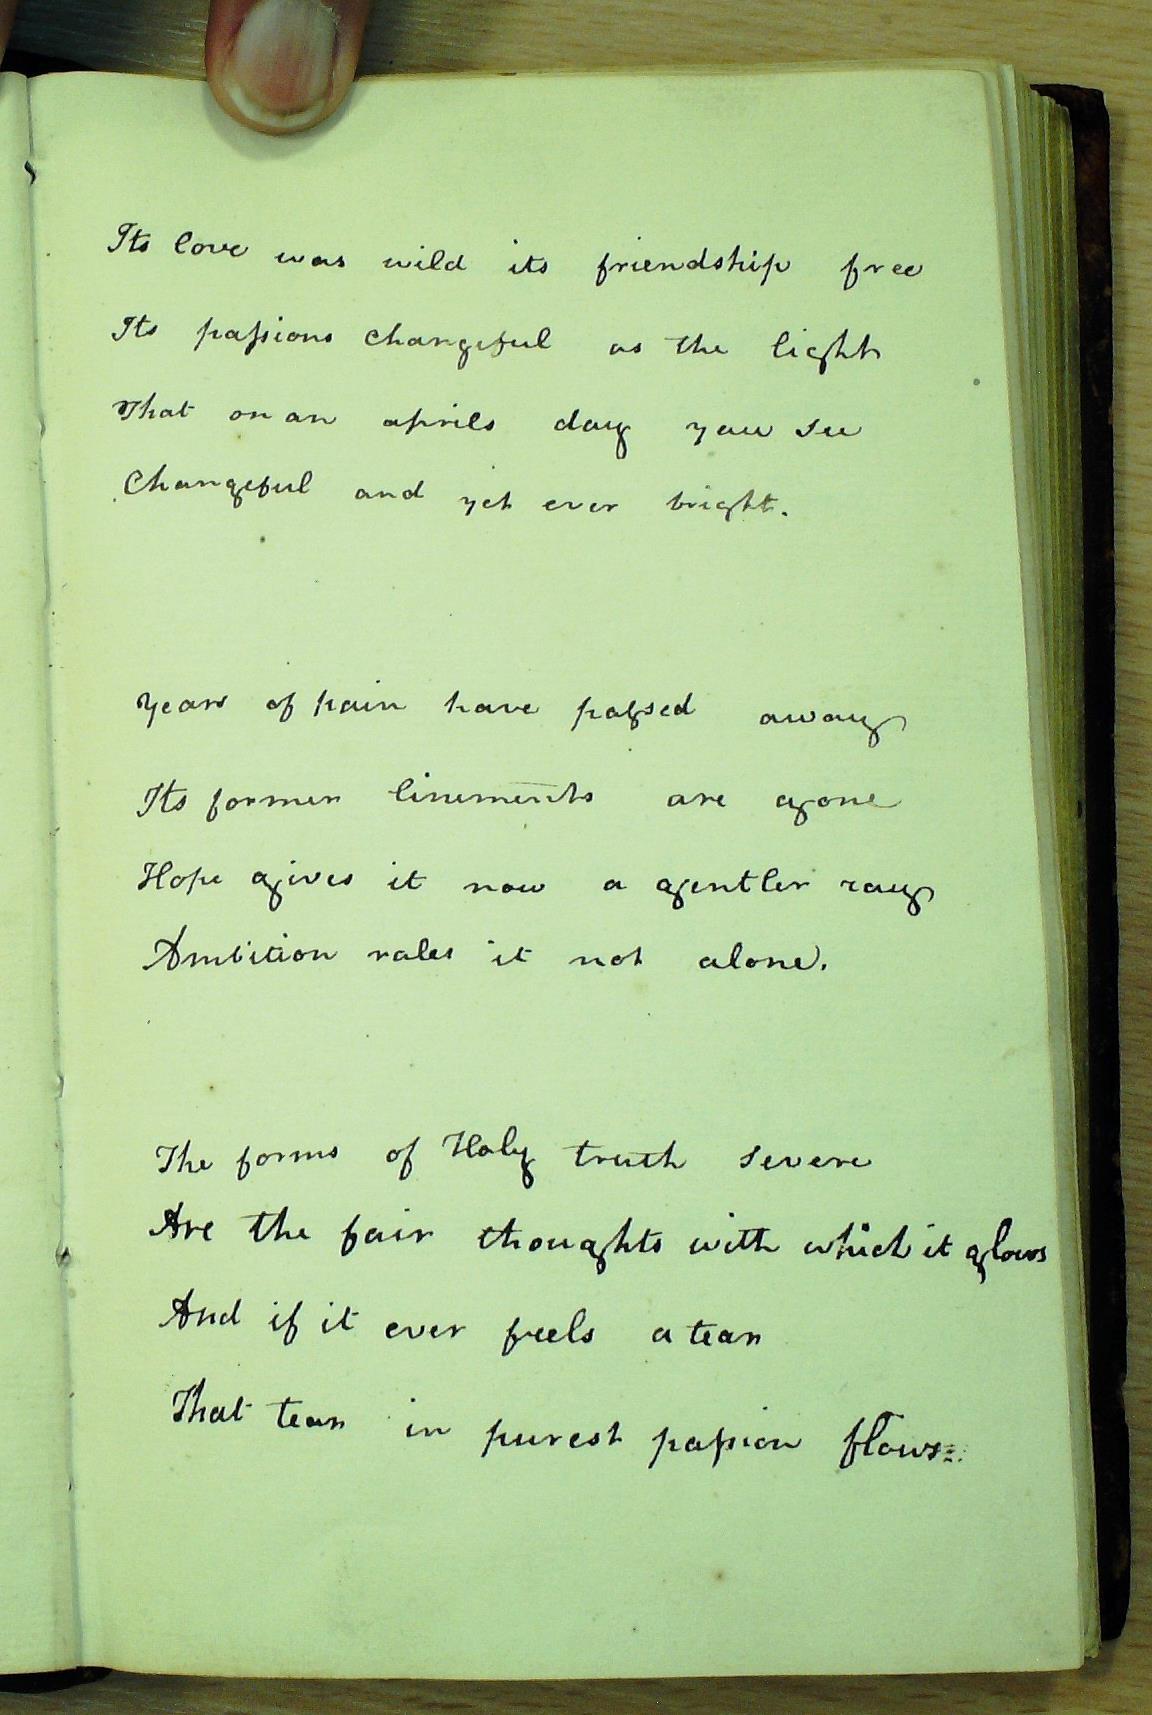 Its love was wild its friendship free
Its paſsions changeful as the light
That on an aprils day you see
Changeful and yet ever bright.
Years of pain have paſsed away
Its former linements are gone
Hope gives it now a gentler ray
Ambition rules it not alone.
The forms of Holy truth severe
Are the fair thoughts with which it glows
And if it ever feels a tear
That tear in purest paſsion flows